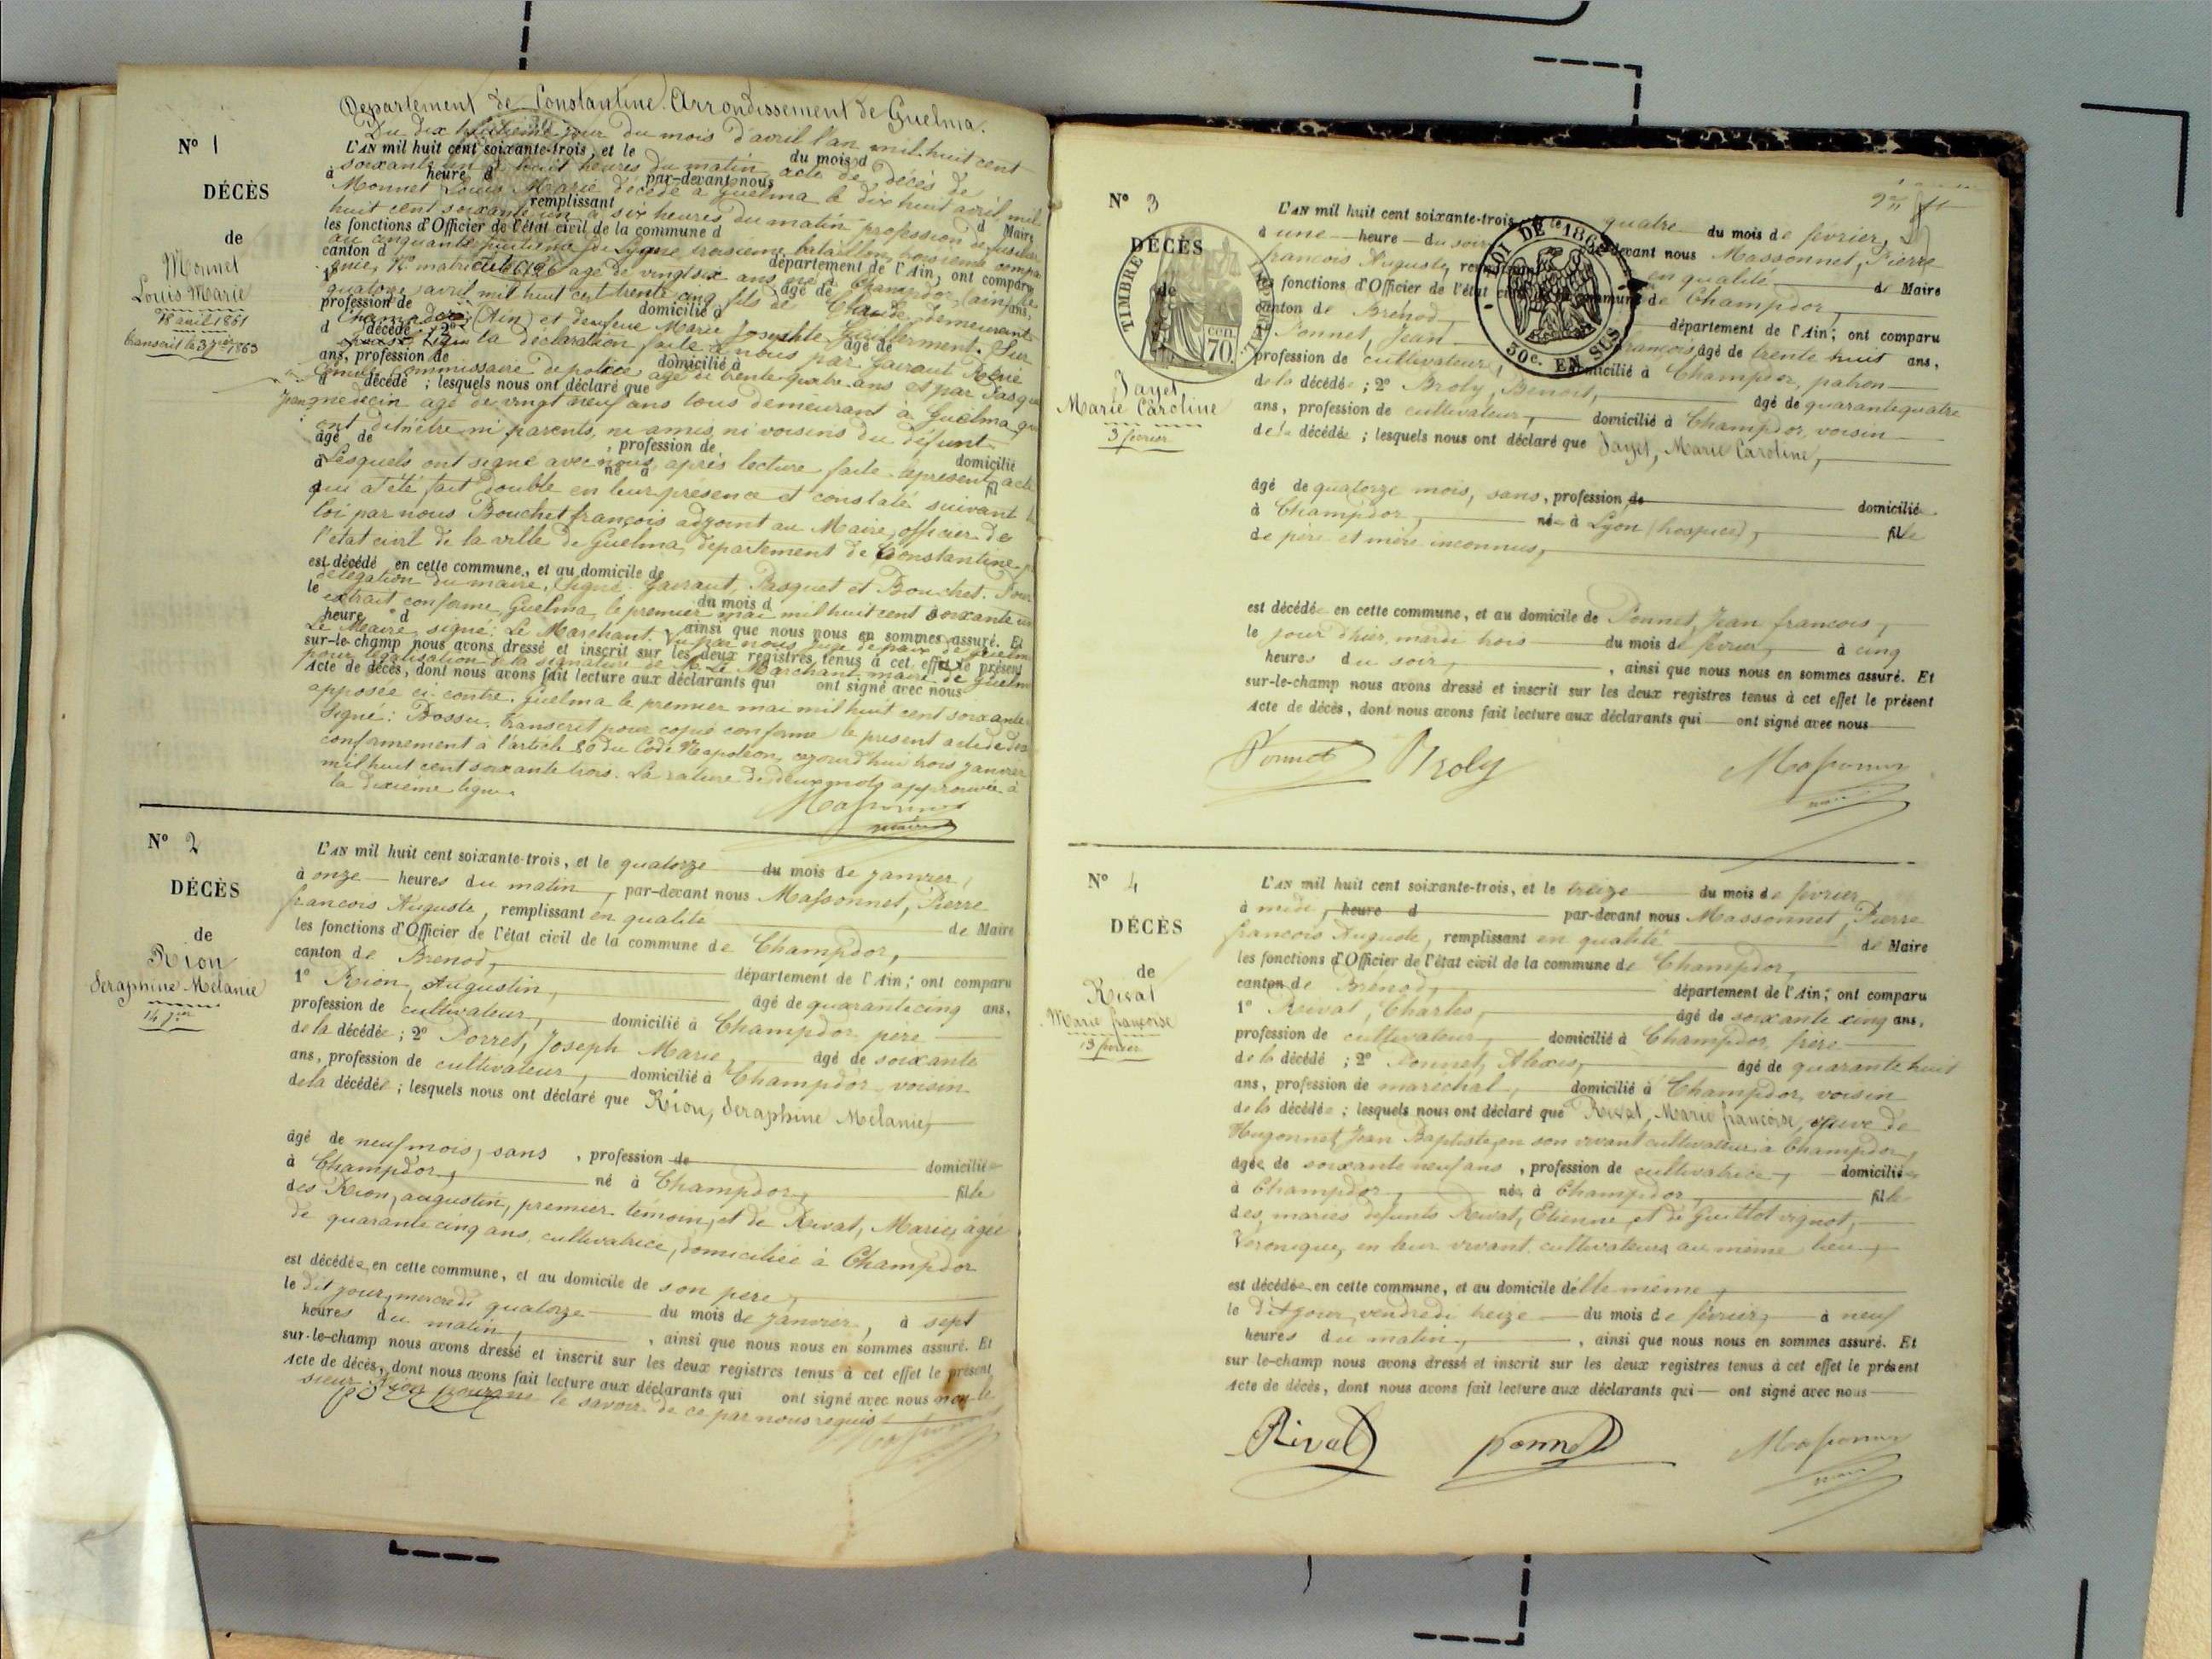 Departement de Constantine. Arrondissement de Guelma.
N° 1
DÉCÈS
de
Monnet
Louis Marie
18 avril 1861
transcrit le 3 jer 1863
Du dix huitième jour du mois d'avril l'an mil huit cent
L'AN mil huit cent soixante-trois, et le du mois d
soixante un à huit heures du matin acte de décès de
à heure d par-devant nous
Monnet Louis Marie décédé à Guelma le dix huit avril mil
remplissant
huit cent soixante un à six heures du matin profession de fusilier
les fonctions d'Officier de l'état civil de la commune d d Maire
au cinquante huitième de Ligne troisième bataillon troisième compa
canton d département de l'Ain, ont comparu
gnie, No matricule âgé de vingt six ans né à Champdor (ain) le
1° âgé de ans,
quatorze avril mil huit cent trente cinq fils de Claude demeurant
profession de domicilié à
Champdor (Ain) et de Marie Josephte Guillermet. Sur
d décédé ; 2° âgé de
la déclaration faite à nous par Gairaut
ans, profession de domicilié à
Commissaire de police âgé de trente quatre ans et par Pasquet
d décédé ; lesquels nous ont déclaré que
Jean médecin âgé de vingt neuf ans tous demeurant à Guelma qui
ont dit n'être ni parents, ni amis, ni voisins du défunt
âgé de , profession de domicilié
Lesquels ont signé avec nous après lecture faite le present acte
à né à fil
qui a été fait double en leur présence et constaté suivant la
loi par nous Bouchet françois adjoint au Maire, officier de
l'etat civil de la ville de Guelma, département de Constantine
est décédé en cette commune, et au domicile de
délégation du maire, signé Gairaut, Pasquet et Bouchet. Pour
le du mois d
extrait conforme, Guelma, le premier mai mil huit cent soixante un
heure d ainsi que nous nous en sommes assuré. Et
Le Maire, signé: Le Marchant. Vu par nous juge de paix de Guelma
sur-le-champ nous avons dressé et inscrit sur les deux registres tenus à cet effet le présent
pour légalisation de la signature de M. Le Marchant maire de Guelma
Acte de décès, dont nous avons fait lecture aux déclarants qui ont signé avec nous
apposée ci-contre. Guelma le premier mai mil huit cent soixante
Signé: Bossu. transcrit pour copie conforme le present acte de
conformement à l'article 80 du Code Napoléon, aujourd'hui trois janvier
mil huit cent soixante trois. La rature de deux mots approuvée à
la dixième ligne.
Massonnet
maire
N° 2
DÉCÈS
de
Rion
Seraphine Mélanie
14 jer
L'AN mil huit cent soixante-trois, et le quatorze du mois de janvier,
à onze heures du matin, par-devant nous Massonnet, Pierre
francois Auguste, remplissant en qualité de Maire
les fonctions d'Officier de l'état civil de la commune de Champdor,
canton de Brenod, département de l'Ain; ont comparu
1° Rion, Augustin, âgé de quarante cinq ans,
profession de cultivateur, domicilié à Champdor père
de la décédée; 2° Porret, Joseph Marie, âgé de soixante
ans, profession de cultivateur, domicilié à Champdor voisin
de la décédée; lesquels nous ont déclaré que Rion, Seraphine Mélanie,
âgé de neuf mois, sans, profession de domiciliée
à Champdor, né à Champdor, fille
des Rion, augustin, premier témoin, et de Rivat, Marie, âgée
de quarante cinq ans, cultivatrice, domiciliée à Champdor
est décédée en cette commune, et au domicile de son pere,
le dit jour, mercredi quatorze du mois de janvier, à sept
heures du matin, , ainsi que nous nous en sommes assuré. Et
sur-le-champ nous avons dressé et inscrit sur les deux registres tenus à cet effet le présent
Acte de décès, dont nous avons fait lecture aux déclarants qui ont signé avec nous non le
sieur Rion pour ne le savoir de ce par nous requis
Massonnet
N° 3
DÉCÈS
de
TIMBRE IMPÉRIAL
70 cen
LOI DE 1862
30c. EN SUS
Jayet
Marie Caroline
3 février
L'AN mil huit cent soixante-trois quatre du mois de février,
à une heure du soir par-devant nous Massonnet, Pierre
francois Auguste, remplissant en qualité de Maire
les fonctions d'Officier de l'état civil de la commune de Champdor,
canton de Brénod département de l'Ain; ont comparu
Ponnet, Jean François âgé de trente huit ans,
profession de cultivateur, domicilié à Champdor, patron
de la décédée; 2° Broly, Benoit, âgé de quarante quatre
ans, profession de cultivateur, domicilié à Champdor, voisin
de la décédée; lesquels nous ont déclaré que Jayet, Marie Caroline,
âgé de quatorze mois, sans, profession de domiciliée
à Champdor, née à Lyon (hospice), fille
de père et mère inconnus,
est décédée en cette commune, et au domicile de Ponnet, Jean francois,
le jour d'hier, mardi trois du mois de février, à cinq
heures du soir, , ainsi que nous nous en sommes assuré. Et
sur-le-champ nous avons dressé et inscrit sur les deux registres tenus à cet effet le présent
Acte de décès, dont nous avons fait lecture aux déclarants qui ont signé avec nous
Ponnet Broly Massonnet
maire
N° 4
DÉCÈS
de
Rivat
Marie françoise
13 février
L'AN mil huit cent soixante-trois, et le treize du mois de février,
à midi, heure d par-devant nous Massonnet, Pierre
francois Auguste, remplissant en qualité de Maire
les fonctions d'Officier de l'état civil de la commune de Champdor,
canton de Brénod, département de l'Ain; ont comparu
1° Rivat, Charles, âgé de soixante cinq ans,
profession de cultivateur, domicilié à Champdor, frère
de la décédé ; 2° Ponnet, Alexis, âgé de quarante huit
ans, profession de maréchal, domicilié à Champdor, voisin
de la décédée; lesquels nous ont déclaré que Rivat, Marie françoise, veuve de
Hugonnet, Jean Baptiste, en son vivant cultivateur à Champdor,
âgée de soixante neuf ans, profession de cultivatrice, domiciliée
à Champdor, née à Champdor, fille
des mariés défunts Rivat, Etienne, et de Guillot vignot,
Véronique, en leur vivant cultivateurs au même lieu,
est décédée en cette commune, et au domicile d'elle même,
le dit jour, vendredi treize du mois de février, à neuf
heures du matin, , ainsi que nous nous en sommes assuré. Et
sur le-champ nous avons dressé et inscrit sur les deux registres tenus à cet effet le présent
Acte de décès, dont nous avons fait lecture aux déclarants qui ont signé avec nous
Rivat ponnet Massonnet
maire